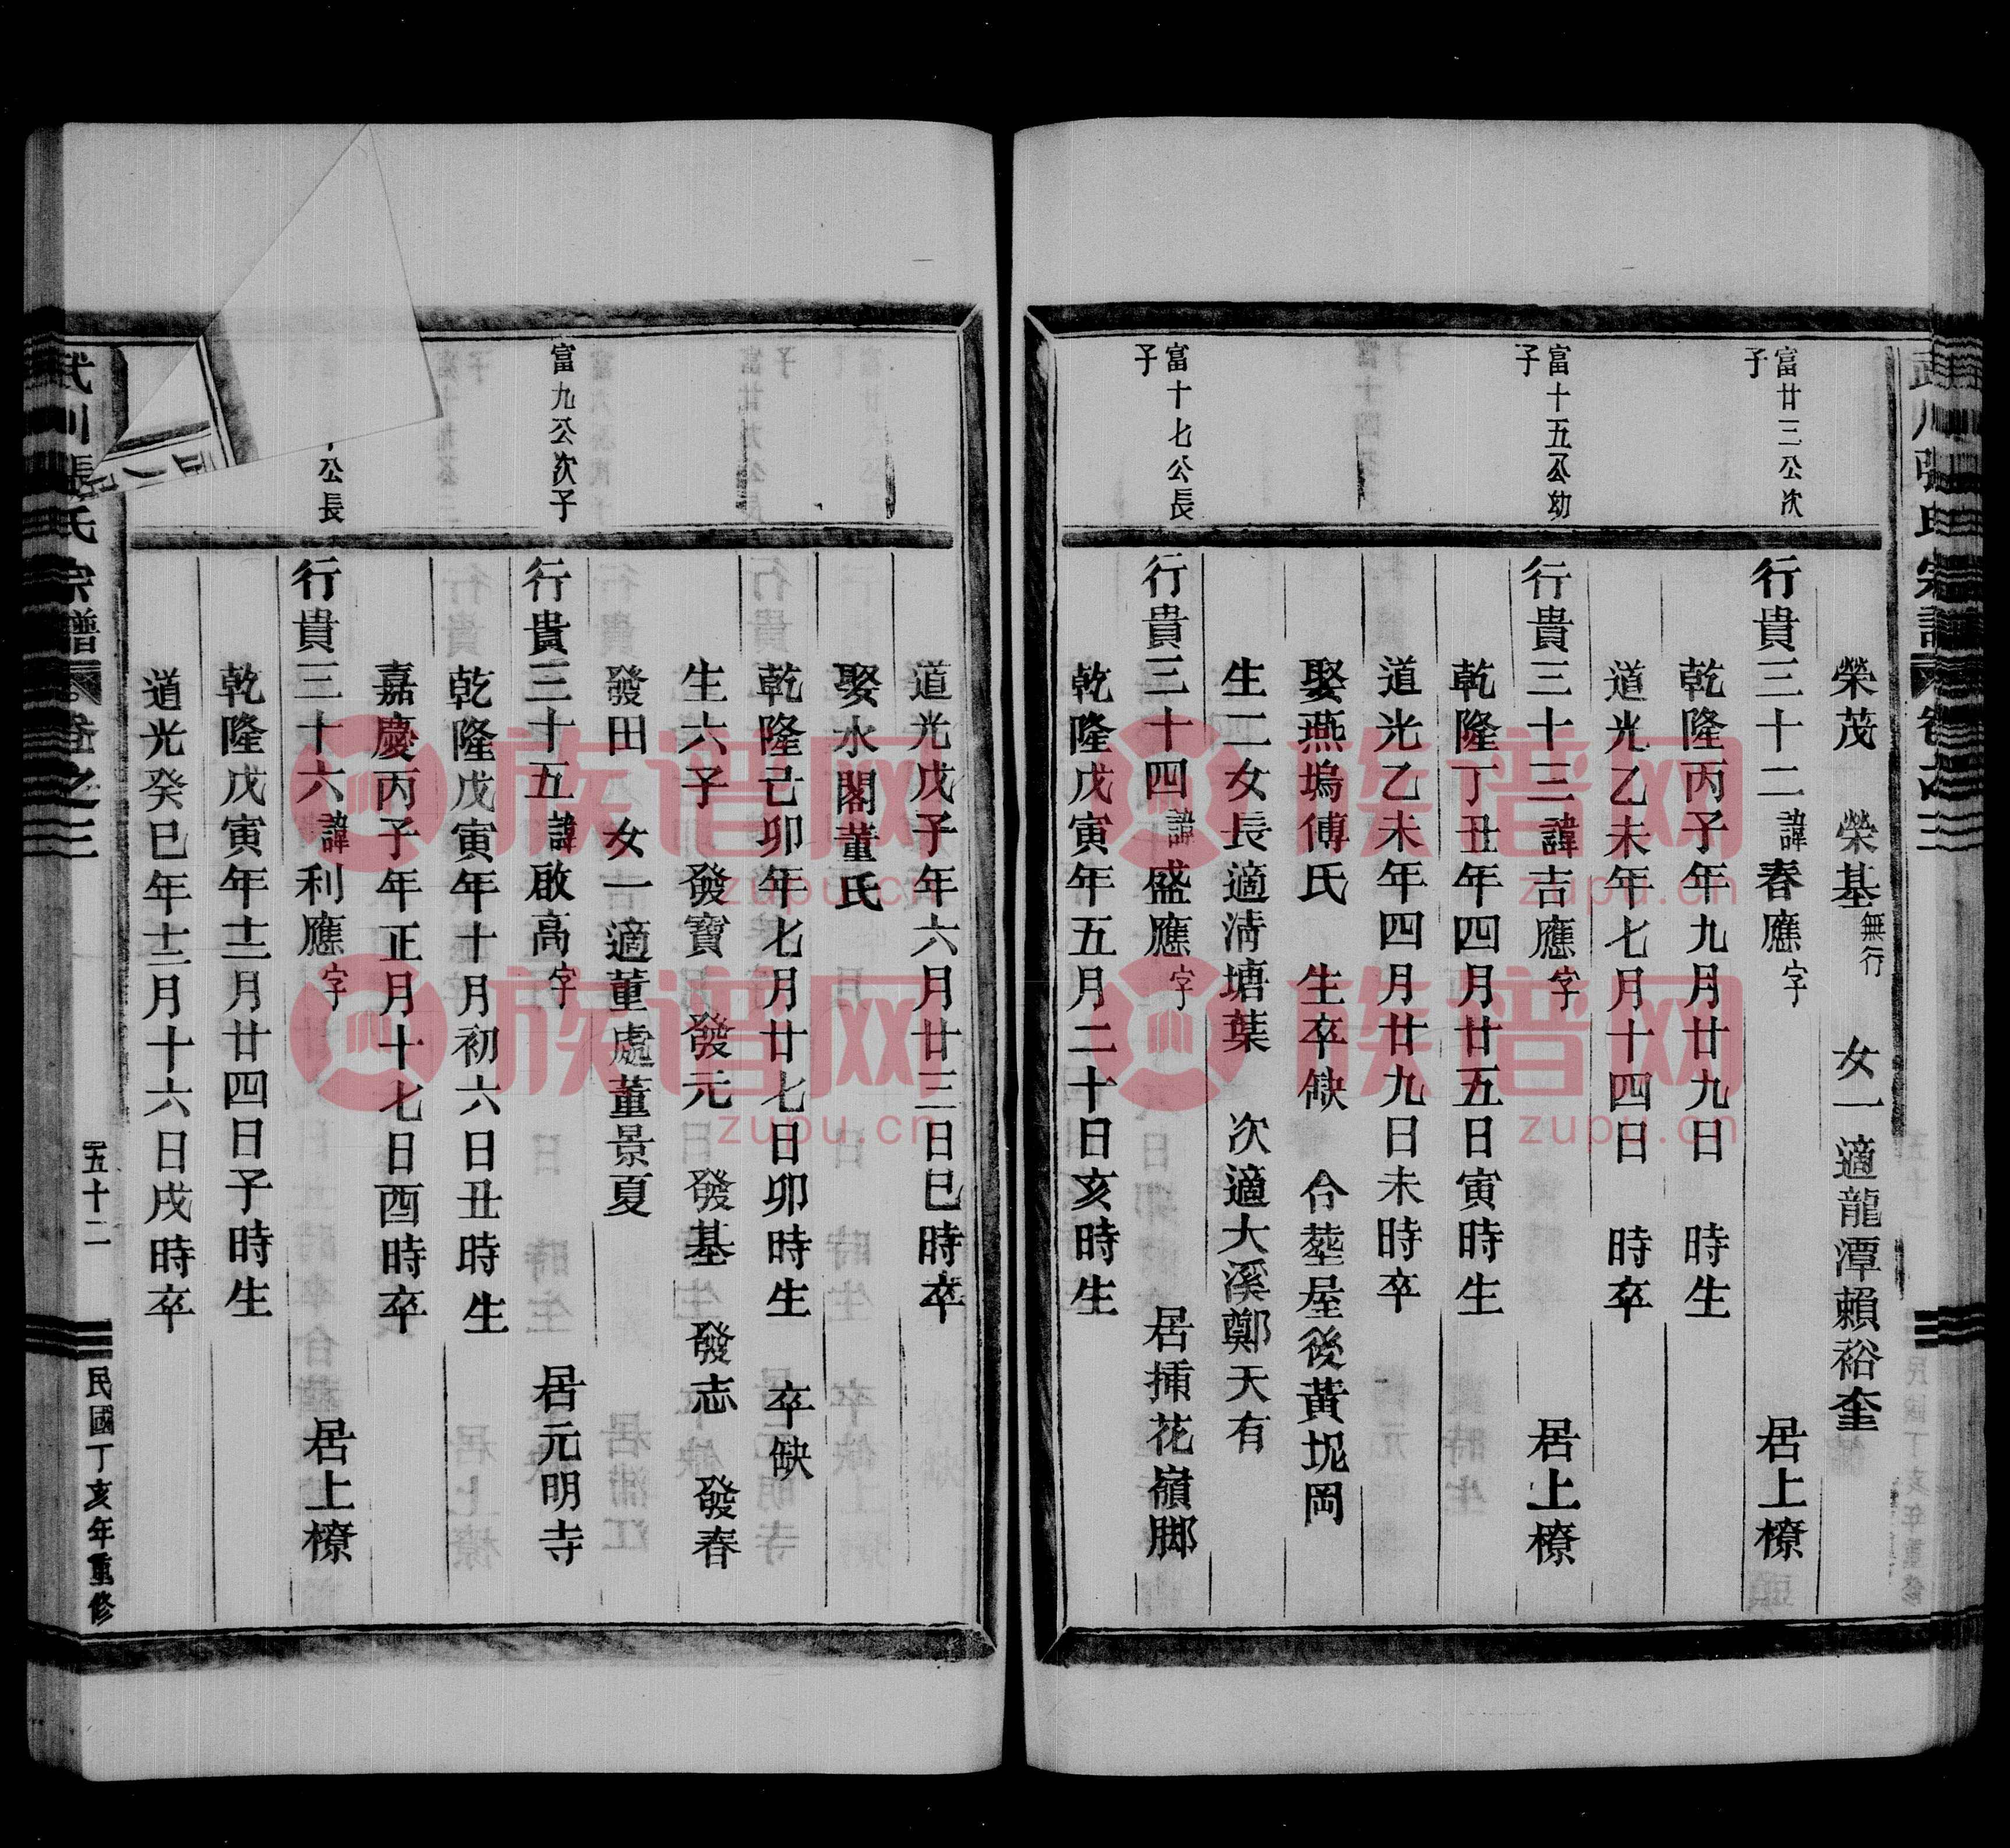 榮茂　榮基無行　女一適龍潭賴裕奎
富廿三公次子
行貴三十二諱春應字　居上橑
乾隆丙子年九月廿九日　時生
道光乙未年七月十四日　時卒
富十五公幼子
行貴三十三諱吉應字　居上橑
乾隆丁丑年四月廿五日寅時生
道光乙未年四月廿九日未時卒
娶燕塢傅氏　生卒缺　合塟屋後黃坭岡
生二女長適淸塘葉　次適大溪鄭天有
富十七公長子
行貴三十四諱盛應字　居揷花嶺脚
乾隆戊寅年五月二十日亥時生
道光戊子年六月廿三日巳時卒
娶水閣董氏
乾隆己卯年七月廿七日卯時生　卒缺
生六子　發寶　發元　發基　發志　發春
發田　女一適董處董景夏
富九公次子
行貴三十五諱啟高字　居元明寺
乾隆戊寅年十月初六日丑時生
嘉慶丙子年正月十七日酉時卒
公長
行貴三十六諱利應字　居上橑
乾隆戊寅年十二月廿四日子時生
道光癸巳年十二月十六日戌時卒
武川張氏宗譜　卷之三　五十二　民國丁亥年重修
族谱网
zupu.cn
族谱网
zupu.cn
族谱网
zupu.cn
族谱网
zupu.cn